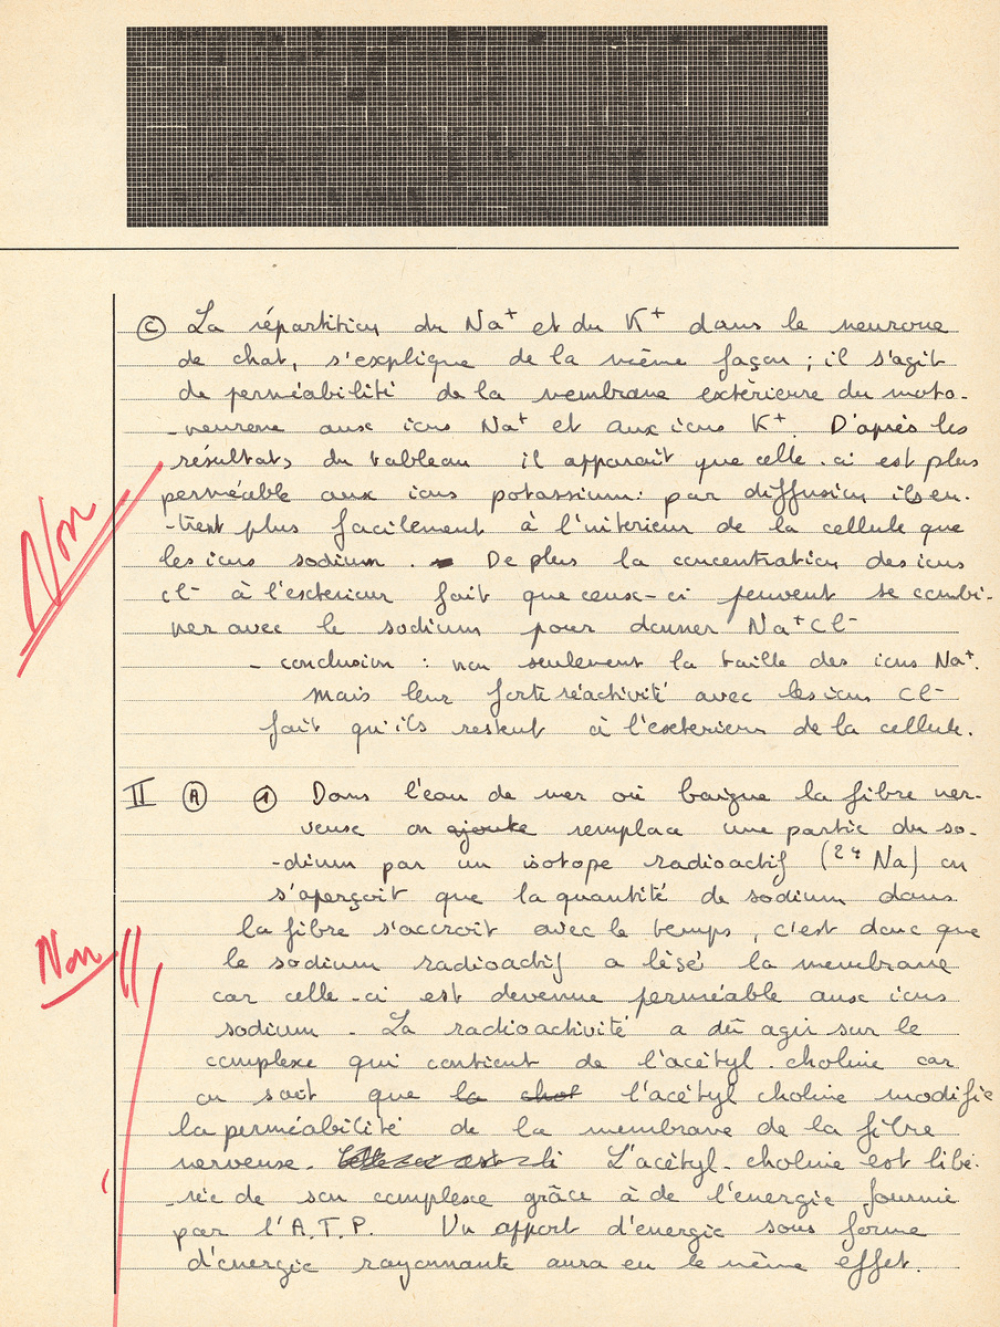 Ⓒ La répartition du Na⁺ et du K⁺ dans le neurone
de chat, s'explique de la même façon ; il s'agit
de perméabilité de la membrane extérieure du moto-
-neurone aux ions Na⁺ et aux ions K⁺. D'après les
résultats du tableau il apparait que celle-ci est plus
perméable aux ions potassium: par diffusion ils en-
-trent plus facilement à l'interieur de la cellule que
les ions sodium. De plus la concentration des ions
Cl⁻ à l'exterieur fait que ceux-ci peuvent se combi-
ner avec le sodium pour donner Na⁺Cl⁻
- conclusion : non seulement la taille des ions Na⁺.
mais leur forte réactivité avec les ions Cl⁻
fait qu'ils restent à l'exterieur de la cellule.
Non
II Ⓐ ① Dans l'eau de mer où baigne la fibre ner-
veuse on ajoute remplace une partie du so-
-dium par un isotope radioactif (²⁴Na) on
s'aperçoit que la quantité de sodium dans
la fibre s'accroit avec le temps, c'est donc que
le sodium radioactif a lésé la membrane
Non
car celle-ci est devenue perméable aux ions
sodium. La radioactivité a dû agir sur le
complexe qui contient de l'acétyl-choline car
on sait que la chol l'acétyl choline modifie
la perméabilité de la membrane de la fibre
nerveuse. L'acétyl-choline est libé-
-rée de son complexe grâce à de l'énergie fournie
par l'A.T.P. Un apport d'energie sous forme
d'énergie rayonnante aura eu le même effet.